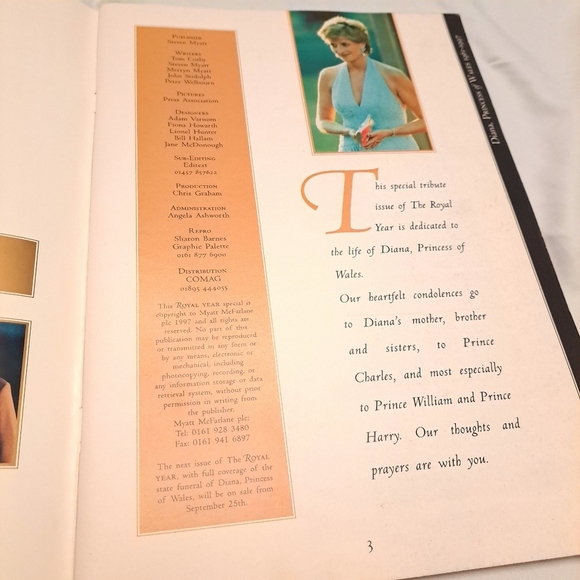 PUBLISHER
Steven Myatt
WRITERS
Tom Corby
Steven Myatt
Mervyn Myatt
John Stidolph
Peter Welbourn
PICTURES
Press Association
DESIGNERS
Adam Varnom
Fiona Howarth
Lionel Hunter
Bill Hallam
Jane McDonough
SUB-EDITING
Editext
01457 857622
PRODUCTION
Chris Graham
ADMINISTRATION
Angela Ashworth
REPRO
Sharon Barnes
Graphic Palette
0161 877 6900
DISTRIBUTION
COMAG
01895 444055
This ROYAL YEAR special is
copyright to Myatt McFarlane
plc 1997 and all rights are
reserved. No part of this
publication may be reproduced
or transmitted in any form or
by any means, electronic or
mechanical, including
photocopying, recording, or
any information storage or data
retrieval system, without prior
permission in writing from
the publisher.
Myatt McFarlane plc:
Tel: 0161 928 3480
Fax: 0161 941 6897
The next issue of The ROYAL
YEAR, with full coverage of the
state funeral of Diana, Princess
of Wales, will be on sale from
September 25th.
Diana, Princess of Wales 1961-1997
This special tribute
issue of The Royal
Year is dedicated to
the life of Diana, Princess of
Wales.
Our heartfelt condolences go
to Diana's mother, brother
and sisters, to Prince
Charles, and most especially
to Prince William and Prince
Harry. Our thoughts and
prayers are with you.
3